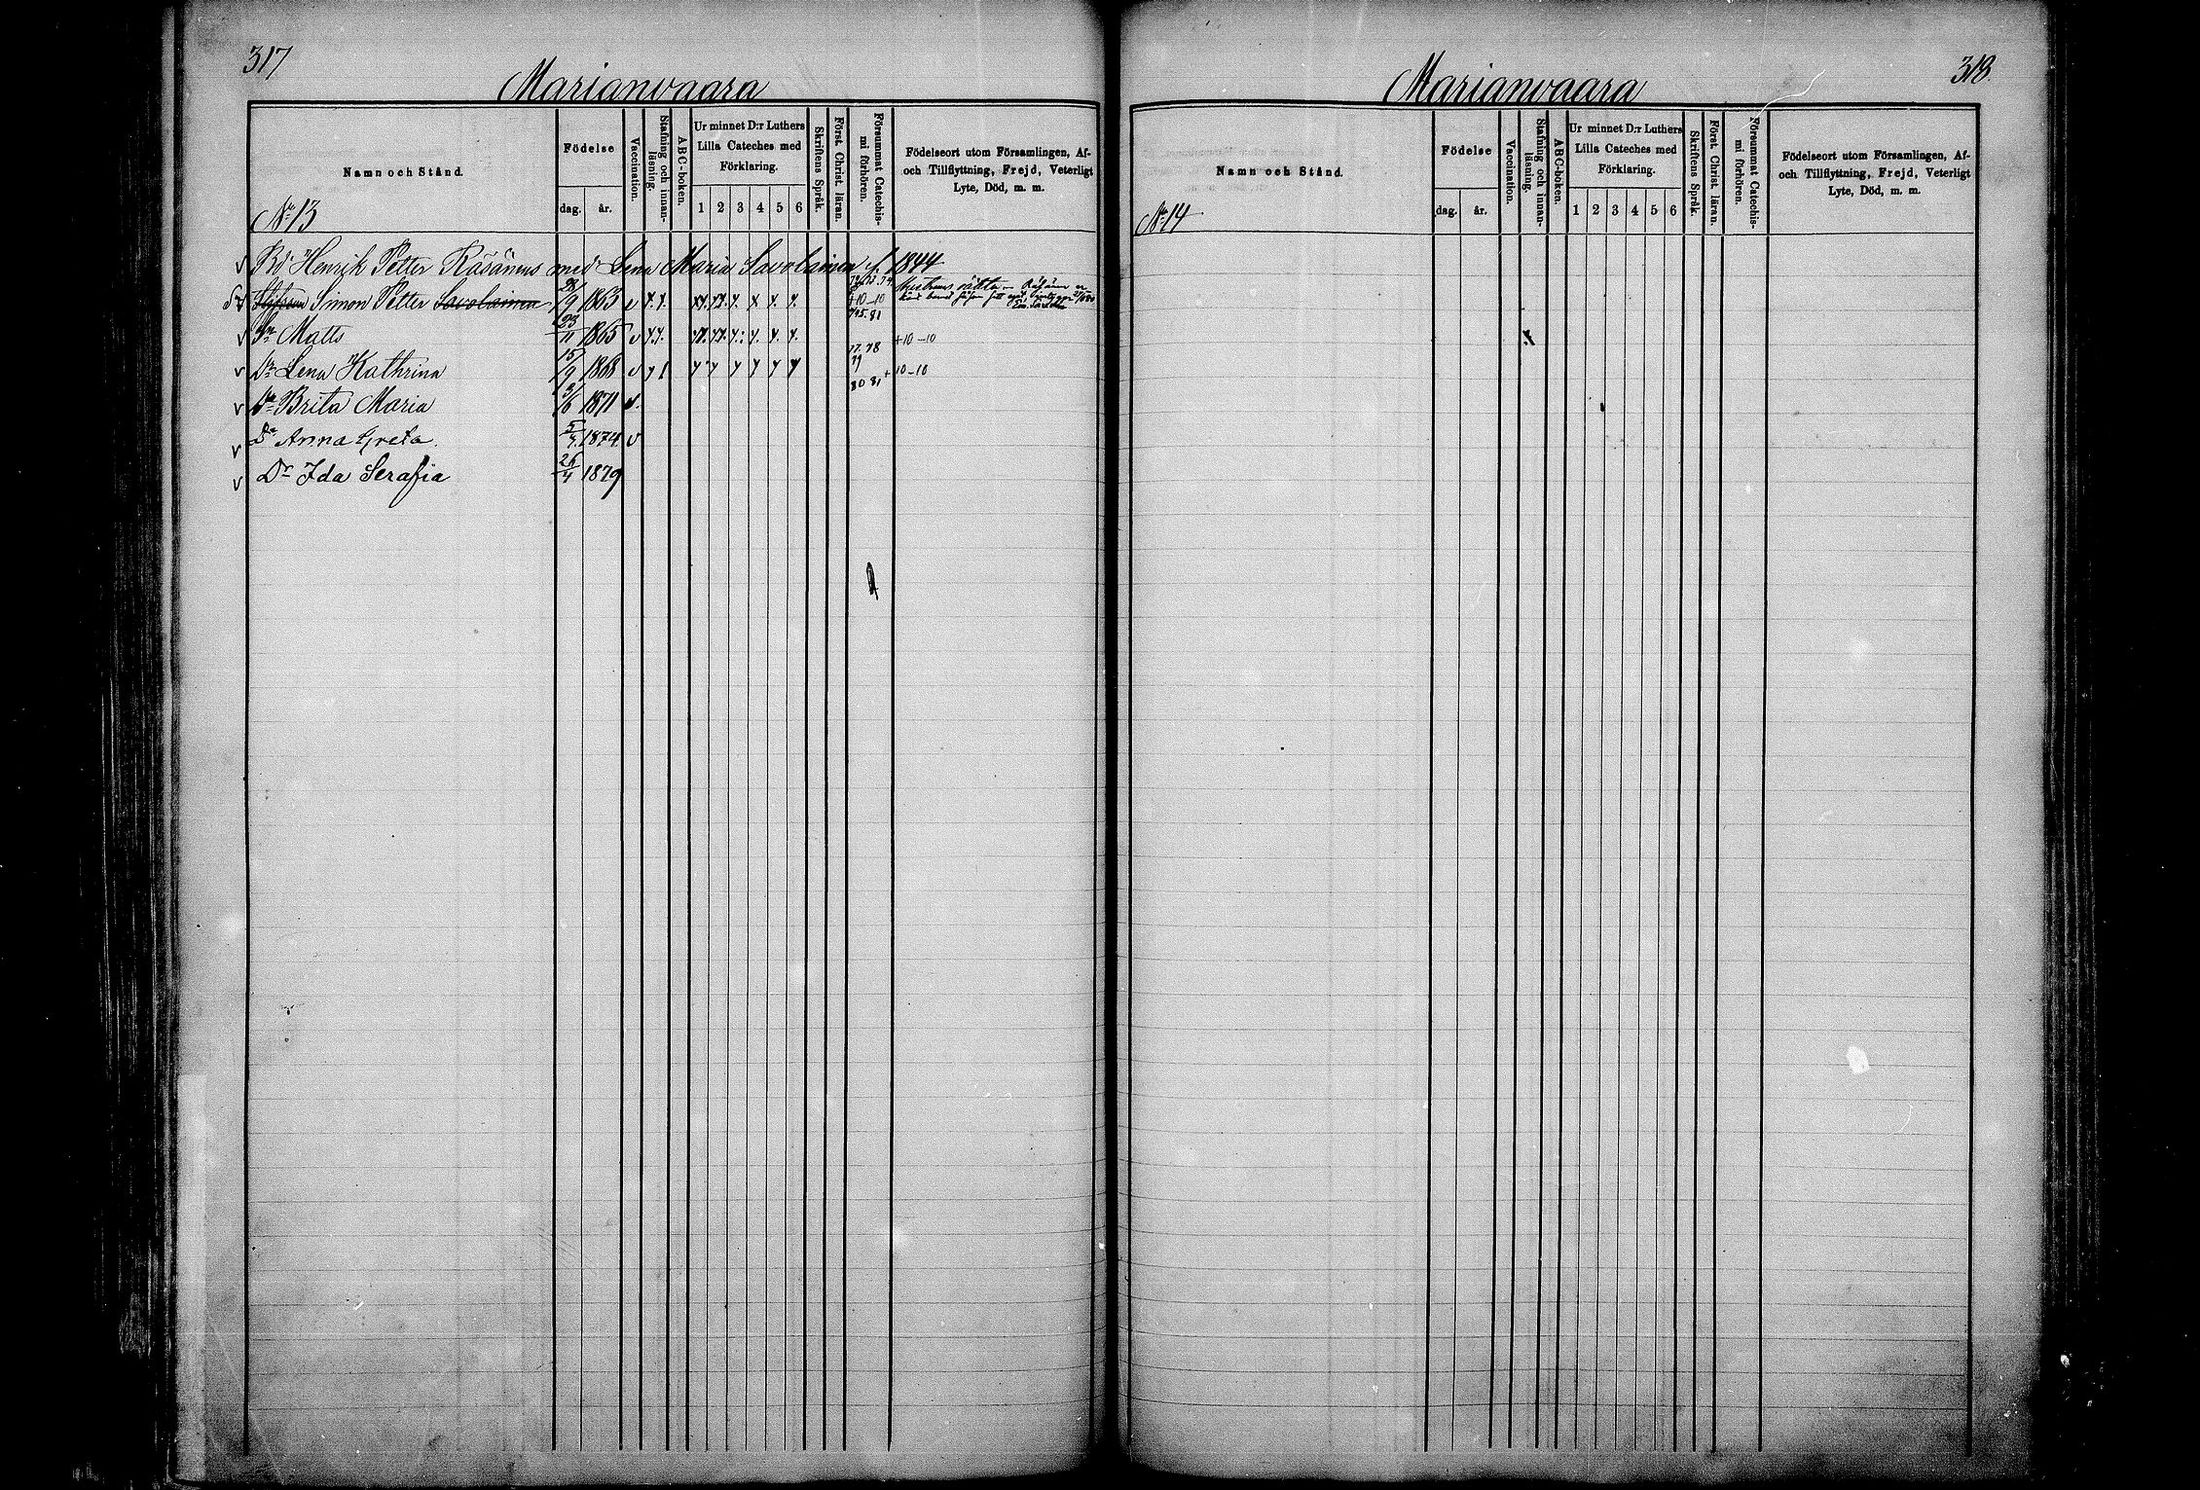 317
Marianvaara
Namn och Stånd.
Födelse
dag.
år.
Vaccination.
Stafning och innan-
läsning.
ABC-boken.
Ur minnet D:r Luthers
Lilla Cateches med
Förklaring.
1 2 3 4 5 6
Skriftens Språk.
Först. Christ. läran.
Försummat Catechis-
mi förhören.
Födelseort utom Församlingen, Af-
och Tillflyttning, Frejd, Veterligt
Lyte, Död, m. m.
No 13
Bd Henrik Petter Räsänens med Lena Maria Savolainen f. 1844
Simon Petter Savolainen 19 1863 v
+10-10
Sn Matts 23/11 1865 v
77. 78 +10-10
79
Dr Lena Kathrina 15/9 1868 v
80 81 + 10-10
Dr Brita Maria 1871 v.
Dr Anna Greta. 1874 v
Dr Ida Serafia 26/4 1879
318.
Marianvaara
Namn och Stånd.
Födelse
dag.
år.
Vaccination.
Stafning och innan-
läsning.
ABC-boken.
Ur minnet D:r Luthers
Lilla Cateches med
Förklaring.
1 2 3 4 5 6
Skriftens Språk.
Först. Christ. läran.
Försummat Catechis-
mi förhören.
Födelseort utom Församlingen, Af-
och Tillflyttning, Frejd, Veterligt
Lyte, Död, m. m.
No 14